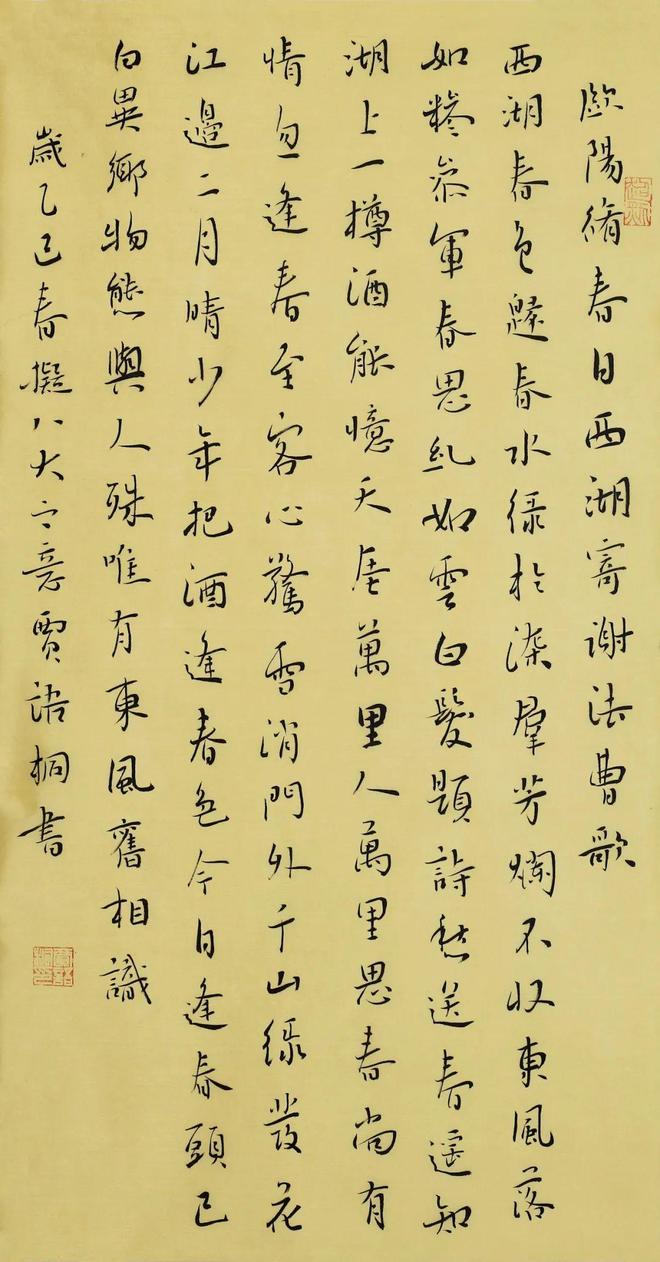 歐陽脩春日西湖寄謝法曹歌
西湖春色歸春水綠於染羣芳爛不収東風落
如糝參軍春思亂如雲白髮題詩愁送春遥知
湖上一樽酒能憶天厓萬里人萬里思春尚有
情忽逢春至客心驚雪消門外千山綠發花
江邊二月晴少年把酒逢春色今日逢春頭已
白異鄉物態與人殊唯有東風舊相識
歲乙巳春擬八大之意賈語桐書